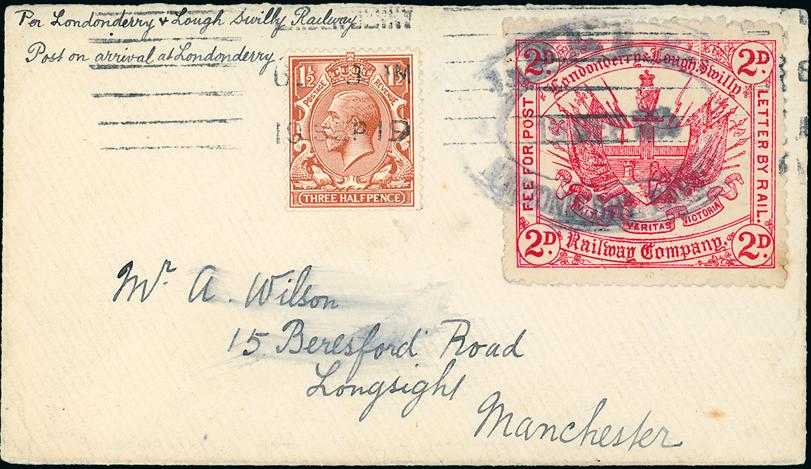 Per Londonderry & Lough Swilly Railway
Post on arrival at Londonderry.
1½ 1½
POSTAGE REVENUE
THREE HALFPENCE
19 SEP 19
2D. 2D.
Londonderry & Lough Swilly
FEE FOR POST
LETTER BY RAIL.
VERITAS VICTORIA
Railway Company.
2D 2D.
Mr A. Wilson
15 Beresford Road
Longsight
Manchester